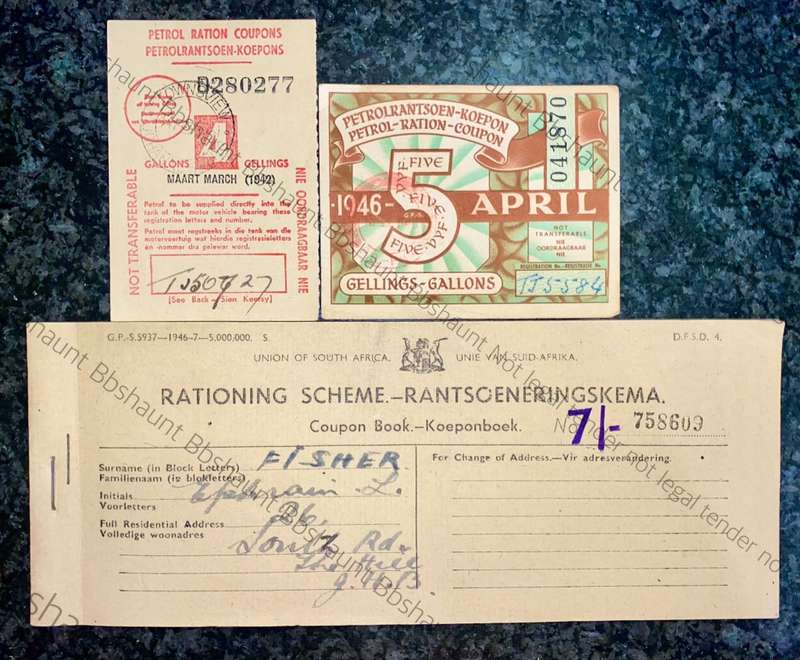 PETROL RATION COUPONS
PETROLRANTSOEN-KOEPONS
B280277
4
GALLONS GELLINGS
MAART MARCH (1942)
NOT TRANSFERABLE
NIE OORDRAAGBAAR NIE
Petrol to be supplied directly into the
tank of the motor vehicle bearing these
registration letters and number.
Petrol moet regstreeks in die tank van die
motorvoertuig wat hierdie registrasieletters
en -nommer dra gelewer word.
[See Back—Sien Keersy]
PETROLRANTSOEN-KOEPON
PETROL-RATION-COUPON
041870
5
VYF-FIVE
FIVE
FIVE-VYF
1946- APRIL
G.P.-S.
NOT
TRANSFERABLE
NIE
OORDRAAGBAAR
NIE
REGISTRATION No.-REGISTRASIE No.
TJ5584
GELLINGS-GALLONS
G.P.-S.5937—1946-7—5,000,000. S.
D.F.S.D. 4.
UNION OF SOUTH AFRICA. UNIE VAN SUID-AFRIKA.
RATIONING SCHEME.—RANTSOENERINGSKEMA.
Coupon Book.—Koeponboek.
7/-
758609
Surname (in Block Letters) FISHER
Familienaam (in blokletters)
Initials Ephraim L.
Voorletters
Full Residential Address
Volledige woonadres
South Rd.
The Hill
J.H.B.
For Change of Address.—Vir adresverandering.
Bbshaunt Not legal tender